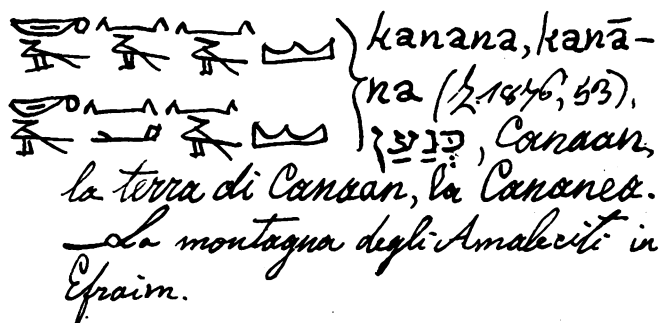 kanana, kanā-
na (Z. 1876, 53),
כְּנַעַן, Canaan,
la terra di Canaan, la Cananea.
—La montagna degli Amaleciti in
Efraim.